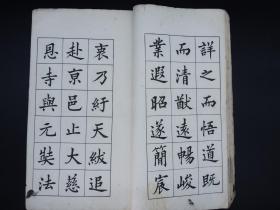 詳之而悟道既
而清猷遠暢峻
業遐昭遂簡宸
衷乃紆天紱追
赴亰邑止大慈
恩寺與元奘法